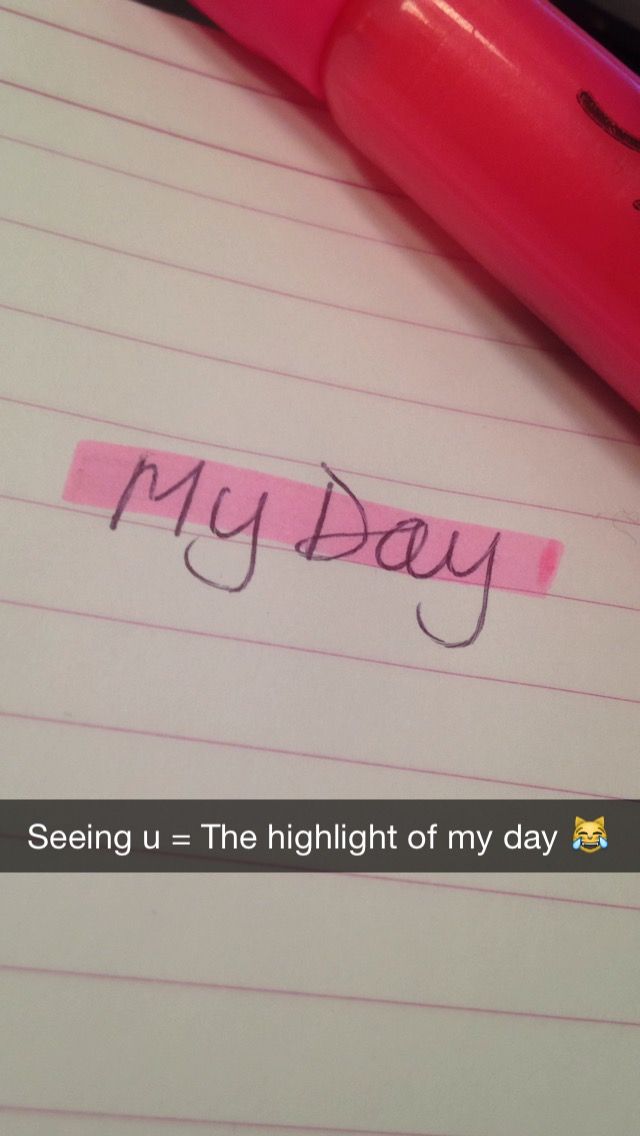 My Day
Seeing u = The highlight of my day 😹